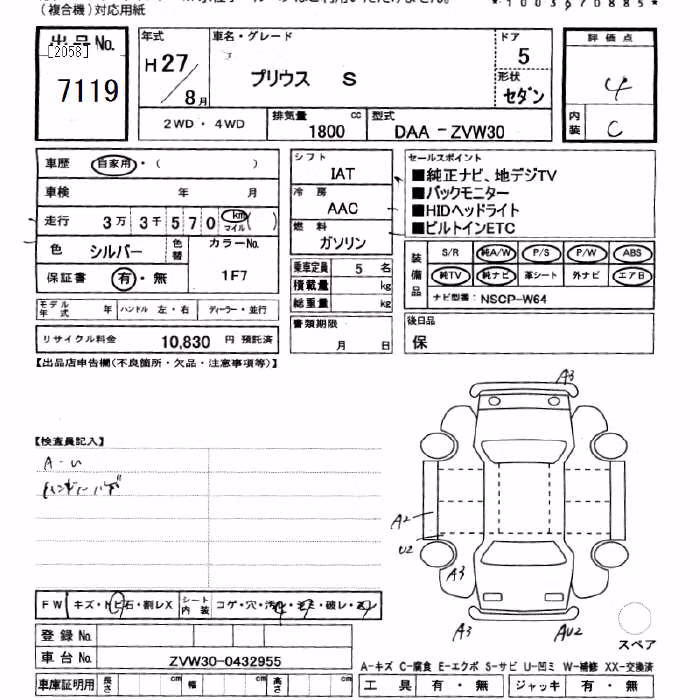 (複合機)対応用紙
*1003670885*
出品No.
[2058]
7119
年式
H27/8月
車名・グレード
プリウス S
ドア
5
形状
セダン
評価点
4
内装
C
2WD・4WD
排気量
1800 cc
型式
DAA-ZVW30
車歴 自家用・( )
車検 年 月
走行 3万3千570 km マイル ( )
色 シルバー 色替
カラーNo.
1F7
保証書 有・無
モデル年式 年 ハンドル 左・右 ディーラー・並行
リサイクル料金 10,830 円 預託済
シフト
IAT
冷房
AAC
燃料
ガソリン
乗車定員 5 名
積載量 kg
総重量 kg
書類期限
月 日
セールスポイント
■純正ナビ、地デジTV
■バックモニター
■HIDヘッドライト
■ビルトインETC
装備品
S/R 純A/W P/S P/W ABS
純TV 純ナビ 革シート 外ナビ エアB
ナビ型番: NSCP-W64
後日品
保
【出品店申告欄(不良箇所・欠品・注意事項等)】
【検査員記入】
A-U
A3
A2
U2
A3
A3
AU2
スペア
FW キズ・トビ石・割レX
シート内装 コゲ・穴・汚レ・シミ・破レ・スレ
登録No.
車台No. ZVW30-0432955
車庫証明用 長さ cm 幅 cm 高さ cm
A-キズ C-腐食 E-エクボ S-サビ U-凹ミ W-補修 XX-交換済
工具 有・無 ジャッキ 有・無